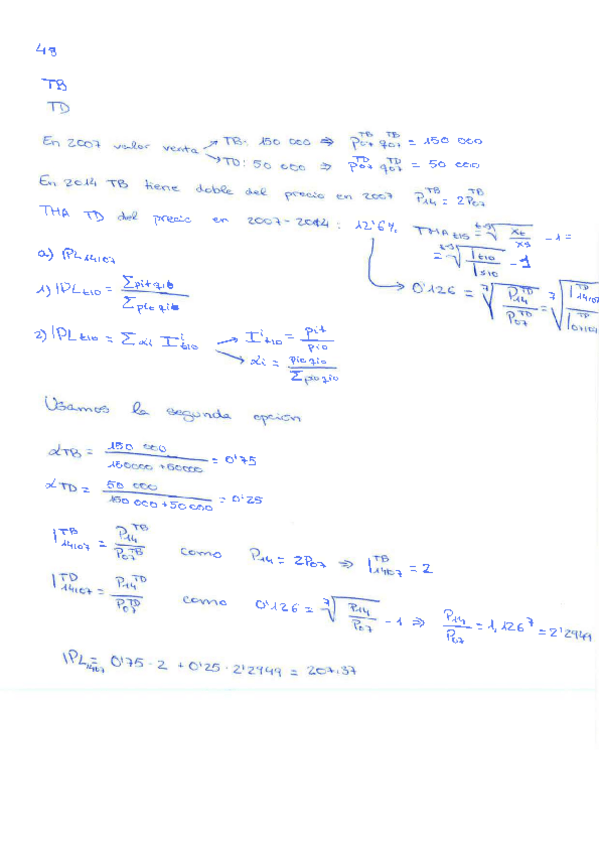 48
TB
TD
En 2007 valor venta → TB: 150 000 ⇒ p07^TB q07^TB = 150 000
→ TD: 50 000 ⇒ p07^TD q07^TD = 50 000
En 2014 TB tiene doble del precio en 2007 P14^TB = 2P07^TB
THA TD del precio en 2007-2014: 12'6%
THA t1s = t-s√(xt/xs) - 1 =
= t-s√(It10/Is10) - 1
→ 0'126 = 7√(P14^TD/P07^TD) = 7√(I14107^TD/I07107^TD)
a) IPL14107
1) IPLt10 = Σpit qi0 / Σpi0 qi0
2) IPLt10 = Σ αi I^i t10 → I^i t10 = pit/pi0
→ αi = pi0qi0 / Σpi0qi0
Usamos la segunda opción
αTB = 150 000 / (150000 + 50000) = 0'75
αTD = 50 000 / (150 000 + 50 000) = 0'25
I14107^TB = P14^TB / P07^TB como P14 = 2P07 ⇒ I14107^TB = 2
I14107^TD = P14^TD / P07^TD como 0'126 = 7√(P14/P07) - 1 ⇒ P14/P07 = 1,126^7 = 2'2949
IPL14107 = 0'75 · 2 + 0'25 · 2'2949 = 207.37